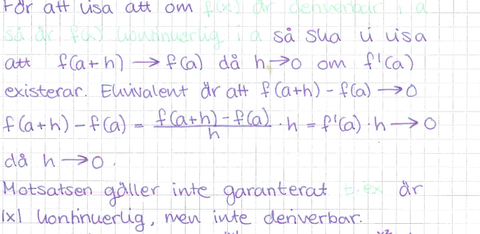 För att visa att om f(x) är deriverbar i a
så är f(x) kontinuerlig i a så ska vi visa
att f(a+h) → f(a) då h→0 om f'(a)
existerar. Ekvivalent är att f(a+h) - f(a) → 0
f(a+h) - f(a) = \frac{f(a+h) - f(a)}{h} · h = f'(a) · h → 0
då h → 0.
Motsatsen gäller inte garanterat t.ex är
|x| kontinuerlig, men inte deriverbar.